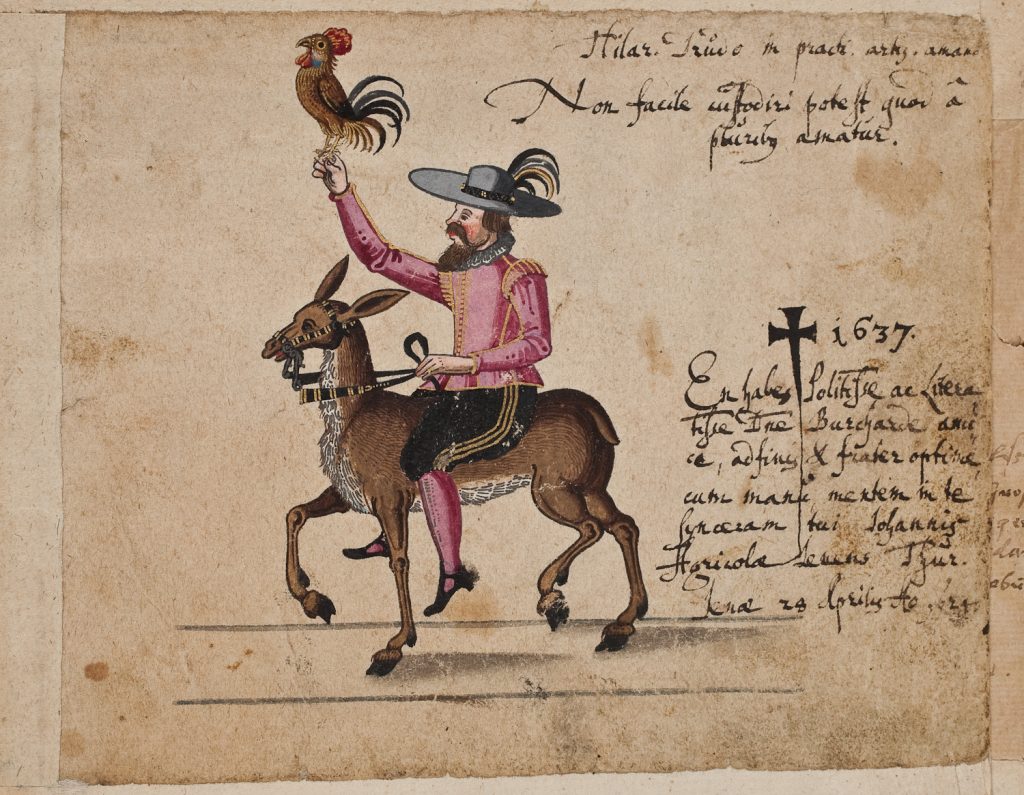 Hilar. in pract. artis. amand
Non facile custodiri potest quod â
pluribꝫ amatur.
1637.
En habes Politissie ac Litera
tissie Dne Burcharde ami
ce, adfinis & frater optime
cum manu mentem in te
synceram tui Iohannis
Agricolæ Thur.
Jenæ 28 Aprilis Ao